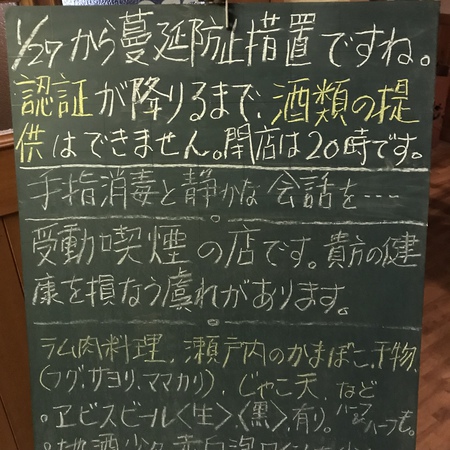 1/27から蔓延防止措置ですね。
認証が降りるまで、酒類の提
供はできません。閉店は20時です。
手指消毒と静かな会話を····
受動喫煙の店です。貴方の健
康を損なう虞れがあります。
ラム肉料理、瀬戸内のかまぼこ、干物、
(フグ、サヨリ、ママカリ)、じゃこ天、など
。ヱビスビール〈生〉、〈黒〉、有り。ハーフ&ハーフも。